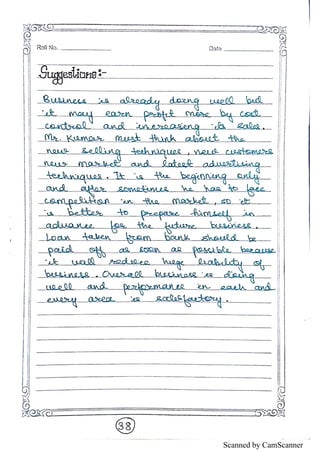 Roll No. Date
Suggestions:-
Business is already doing well but
it may earn profit more by cost
control and increasing its sales.
Mr. Kumar must think about the
new selling techniques, new customers
new market and latest advertising
techniques. It is the beginning only
and after sometimes he has to face
competition in the market, so it
is better to prepare himself in
advance for the future business.
Loan taken from bank should be
paid off as soon as possible because
it will reduce huge liability of
business. Overall business is doing
well and performance in each and
every area is satisfactory.
38
Scanned by CamScanner